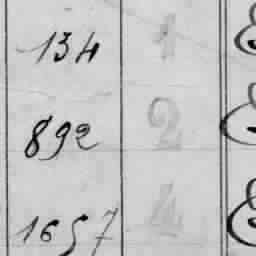 134 1
892 2
1657 4